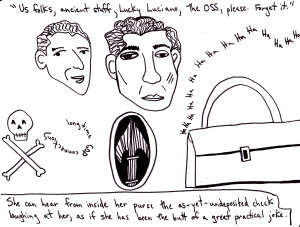 "Us folks, ancient stuff, Lucky Luciano, the OSS, please. Forget it."
Ha Ha Ha Ha Ha Ha Ha Ha Ha Ha Ha Ha
long time
gone
connections
She can hear from inside her purse the as-yet-undeposited check
laughing at her, as if she has been the butt of a great practical joke.